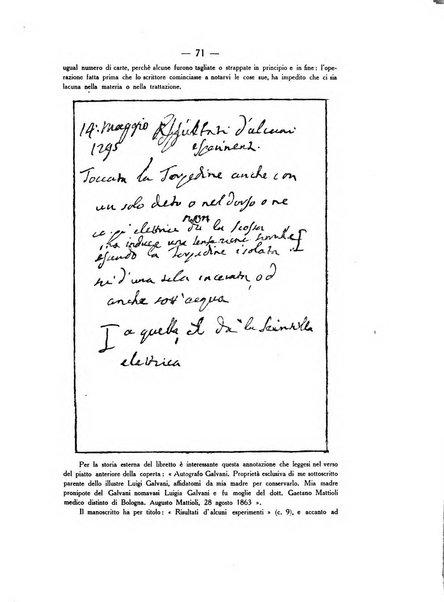 — 71 —
ugual numero di carte, perchè alcune furono tagliate o strappate in principio e in fine: l'ope-
razione fatta prima che lo scrittore cominciasse a notarvi le cose sue, ha impedito che ci sia
lacuna nella materia o nella trattazione.
14: Maggio Risultati d'alcuni
1795 esperimenti.
Toccata la Torpedine anche con
un solo dito o nel dorso o ne
elettrici dà la scossa
non
ha indice una
essendo la Torpedine isolata
su d'una tela incerata, od
anche sott'acqua
I a quella, che dà la Scintilla
elettrica
Per la storia esterna del libretto è interessante questa annotazione che leggesi nel verso
del piatto anteriore della coperta: « Autografo Galvani. Proprietà esclusiva di me sottoscritto
parente dello illustre Luigi Galvani, affidatomi da mia madre per conservarlo. Mia madre
pronipote del Galvani nomavasi Luigia Galvani e fu moglie del dott. Gaetano Mattioli
medico distinto di Bologna. Augusto Mattioli, 28 agosto 1863 ».
Il manoscritto ha per titolo: « Risultati d'alcuni esperimenti » (c. 9), e accanto ad